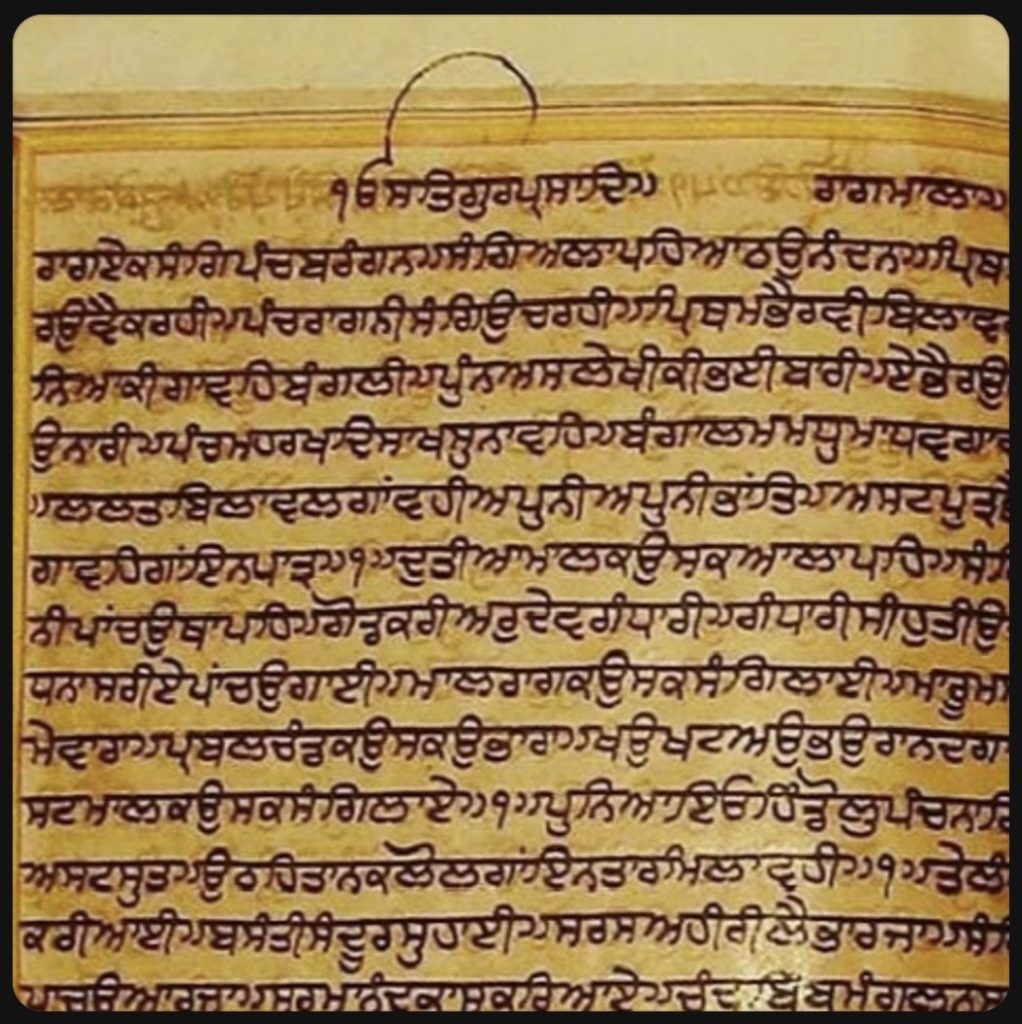 ੧ਓ ਸਤਿਗੁਰਪ੍ਰਸਾਦਿ॥ ਰਾਗਮਾਲਾ॥
ਰਾਗਏਕਸੰਗਿਪੰਚਬਰੰਗਨ॥ਸੰਗਿਅਲਾਪਹਿਆਠਉਨੰਦਨ॥ਪ੍ਰਿਥ
ਰਉਵੈਕਰਹੀ॥ਪੰਚਰਾਗਨੀਸੰਗਿਉਚਰਹੀ॥ਪ੍ਰਿਥਮਭੈਰਵੀਬਿਲਾਵ
ਨਿਆਕੀਗਾਵਹਿਬੰਗਲੀ॥ਪੁੰਨਅਸਲੇਖੀਕੀਭਈਬਾਰੀ॥ਏਭੈਰਉ
ਉਨਾਰੀ॥ਪੰਚਮਹਰਖਦਿਸਾਖਸੁਨਾਵਹਿ॥ਬੰਗਾਲਮਮਧੁਮਾਧਵਗਾਵ
॥ਲਲਤਬਿਲਾਵਲਗਾਂਵਹੀਅਪੁਨੀਅਪੁਨੀਭਾਂਤਿ॥ਅਸਟਪੁਤ੍ਰ
ਗਾਵਹਿਗਾਂਇਨਪਾਤ੍ਰ॥੧॥ਦੁਤੀਆਮਾਲਕਉਸਕਆਲਾਪਹਿ॥ਸੰਗਿ
ਨੀਪਾਂਚਉਥਾਪਹਿ॥ਗੋਂਡਕਰੀਅਰੁਦੇਵਗੰਧਾਰੀ॥ਗੰਧਾਰੀਸੀਹੁਤੀਉ
ਧਨਾਸਰੀਏਪਾਂਚਉਗਾਈ॥ਮਾਲਰਾਗਕਉਸਕਸੰਗਿਲਾਈ॥ਮਾਰੂਮਸ
ਮੇਵਾਰਾ॥ਪ੍ਰਬਲਚੰਡਕਉਸਕਉਭਾਰਾ॥ਖਉਖਟਅਉਭਉਰਾਨਦਗਾ
ਸਟਮਾਲਕਉਸਕਸੰਗਿਲਾਏ॥੧॥ਪੁਨਿਆਇਓਹਿੰਡੋਲੁਪੰਚਨਾਰਿ
ਅਸਟਸੁਤ॥ਉਠਹਿਤਾਨਕਲੋਲਗਾਂਇਨਤਾਰਮਿਲਾਵਹੀ॥੧॥ਤੇਲੰ
ਕਰੀਆਈ॥ਬਸੰਤੀਸੰਦੂਰਸੁਹਾਈ॥ਸਰਸਅਹੀਰੀਲੈਭਾਰਜਾ॥ਸੰ